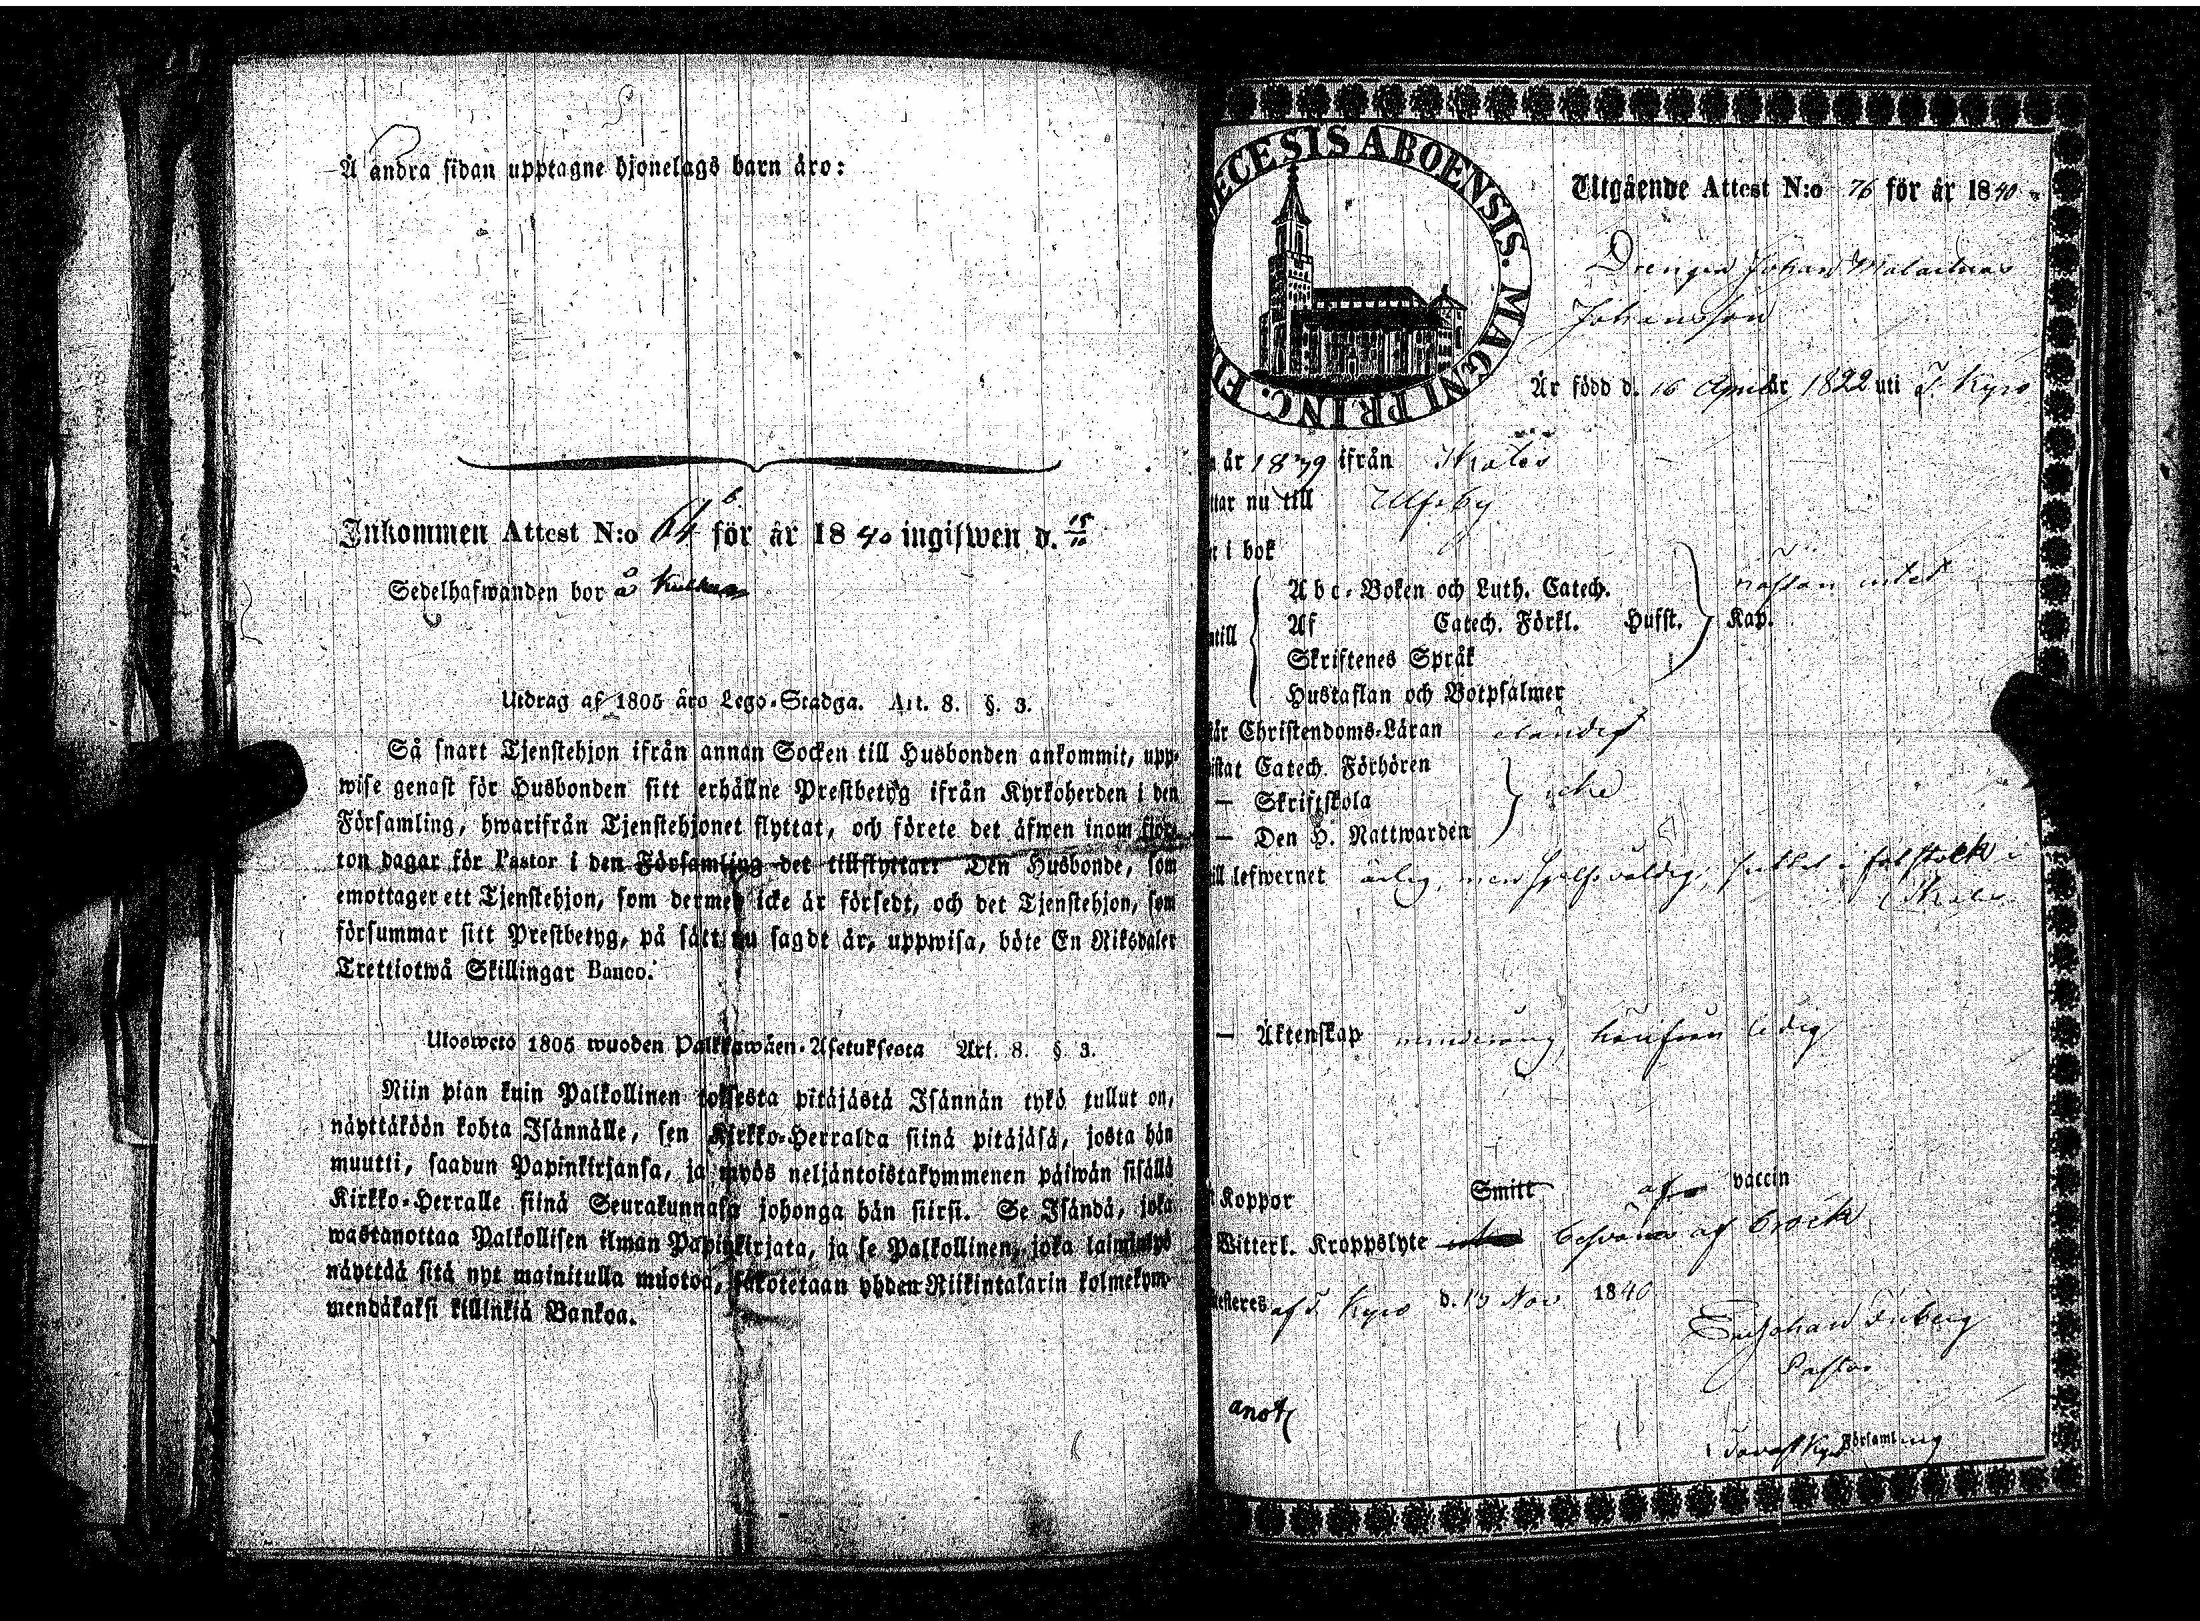 Å andra sidan upptagne hjonelags barn äro:
Inkommen Attest N:o 64 b för år 1840 ingifwen d. 15/10
Sedelhafwanden bor å
Utdrag af 1805 åro Lego-Stadga. Art. 8. §. 3.
Så snart Tjenstehjon ifrån annan Socken till Husbonden ankommit, upp-
wise genast för Husbonden sitt erhållne Prestbetyg ifrån Kyrkoherden i den
Församling, hwarifrån Tjenstehjonet flyttat, och förete det äfwen inom fjor-
ton dagar för Pastor i den Församling det tillflyttat: Den Husbonde, som
emottager ett Tjenstehjon, som dermed icke är försedt, och det Tjenstehjon, som
försummar sitt Prestbetyg, på sätt nu sagdt är, uppwisa, böte En Riksdaler
Trettiotwå Skillingar Banco.
Ulosweto 1805 wuoden Palkkawäen-Asetuksesta Art. 8. §. 3.
Niin pian kuin Palkollinen toisesta pitäjästä Isännän tykö tullut on,
näyttäköön kohta Isännälle, sen Kirkko-Herralda siinä pitäjäsä, josta hän
muutti, saadun Papinkirjansa, ja myös neljäntoistakymmenen päiwän sisällä
Kirkko-Herralle siinä Seurakunnasa johonga hän siirsi. Se Isändä, joka
wastanottaa Palkollisen ilman Papinkirjata, ja se Palkollinen, joka laiminlyö
näyttää sitä nyt mainitulla muotoa, sakotetaan yhden Riikintalarin kolmekym-
mendäkaksi killinkiä Bankoa.
ECESIS ABOENSIS. MAGNI PRINC. FI
Utgående Attest N:o 76 för år 1840
Drengen Johan
Johansson
Är född d. 16 April år 1822 uti T. Kyro
år 1839 ifrån
nu till Ulfsby
i bok
Abc-Boken och Luth. Catech. nästan intet
Af Catech. Förkl. Hufst. Kap.
Skriftenes Språk
Hustaflan och Botpsalmer
Christendoms-Läran eländigt
Catech. Förhören
— Skriftskola icke
— Den H. Nattwarden
lefwernet ärlig, men sjelfsvåldig, suttit i fotstock i
— Äktenskap minderårig, härifrån ledig
Koppor Smitt af vaccin
Witterl. Kroppslyte besväras af bråck
af T. Kyro d. 13 Nov 1840
Johan Friberg
Pastor
anot
i Tavast Kyro Församling